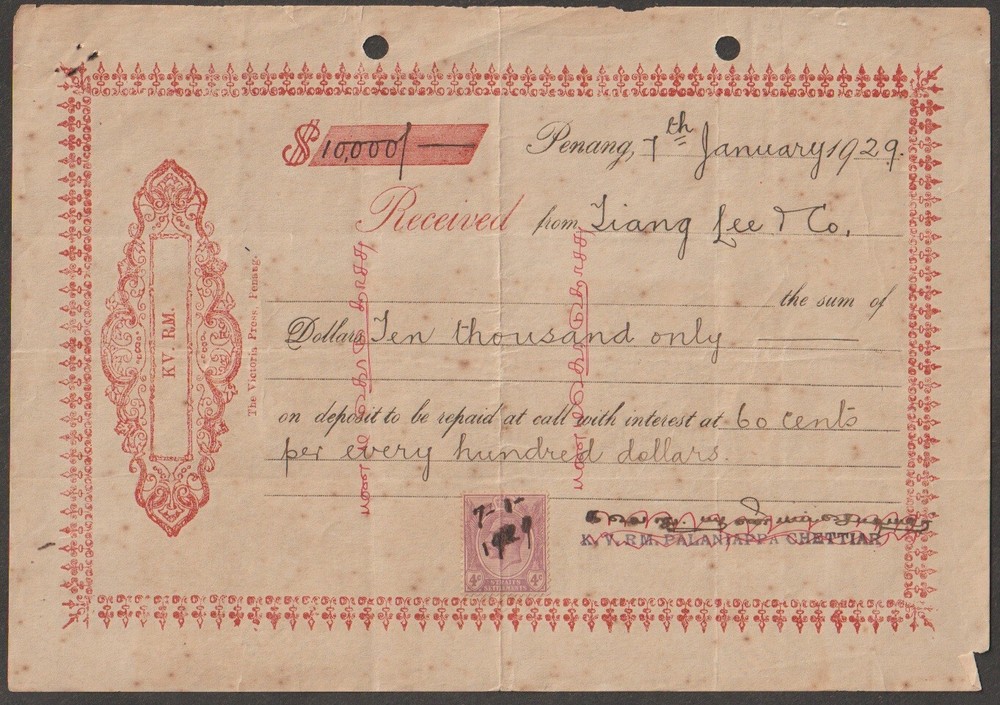 $ 10,000/—
Penang, 7th January 1929.
Received from Tiang Lee & Co.
the sum of
Dollars Ten thousand only
on deposit to be repaid at call with interest at 60 cents
per every hundred dollars.
KV. RM.
The Victoria Press, Penang.
7-1-
1929
4c STRAITS SETTLEMENTS 4c
K. V. R M. PALANIAPPA CHETTIAR